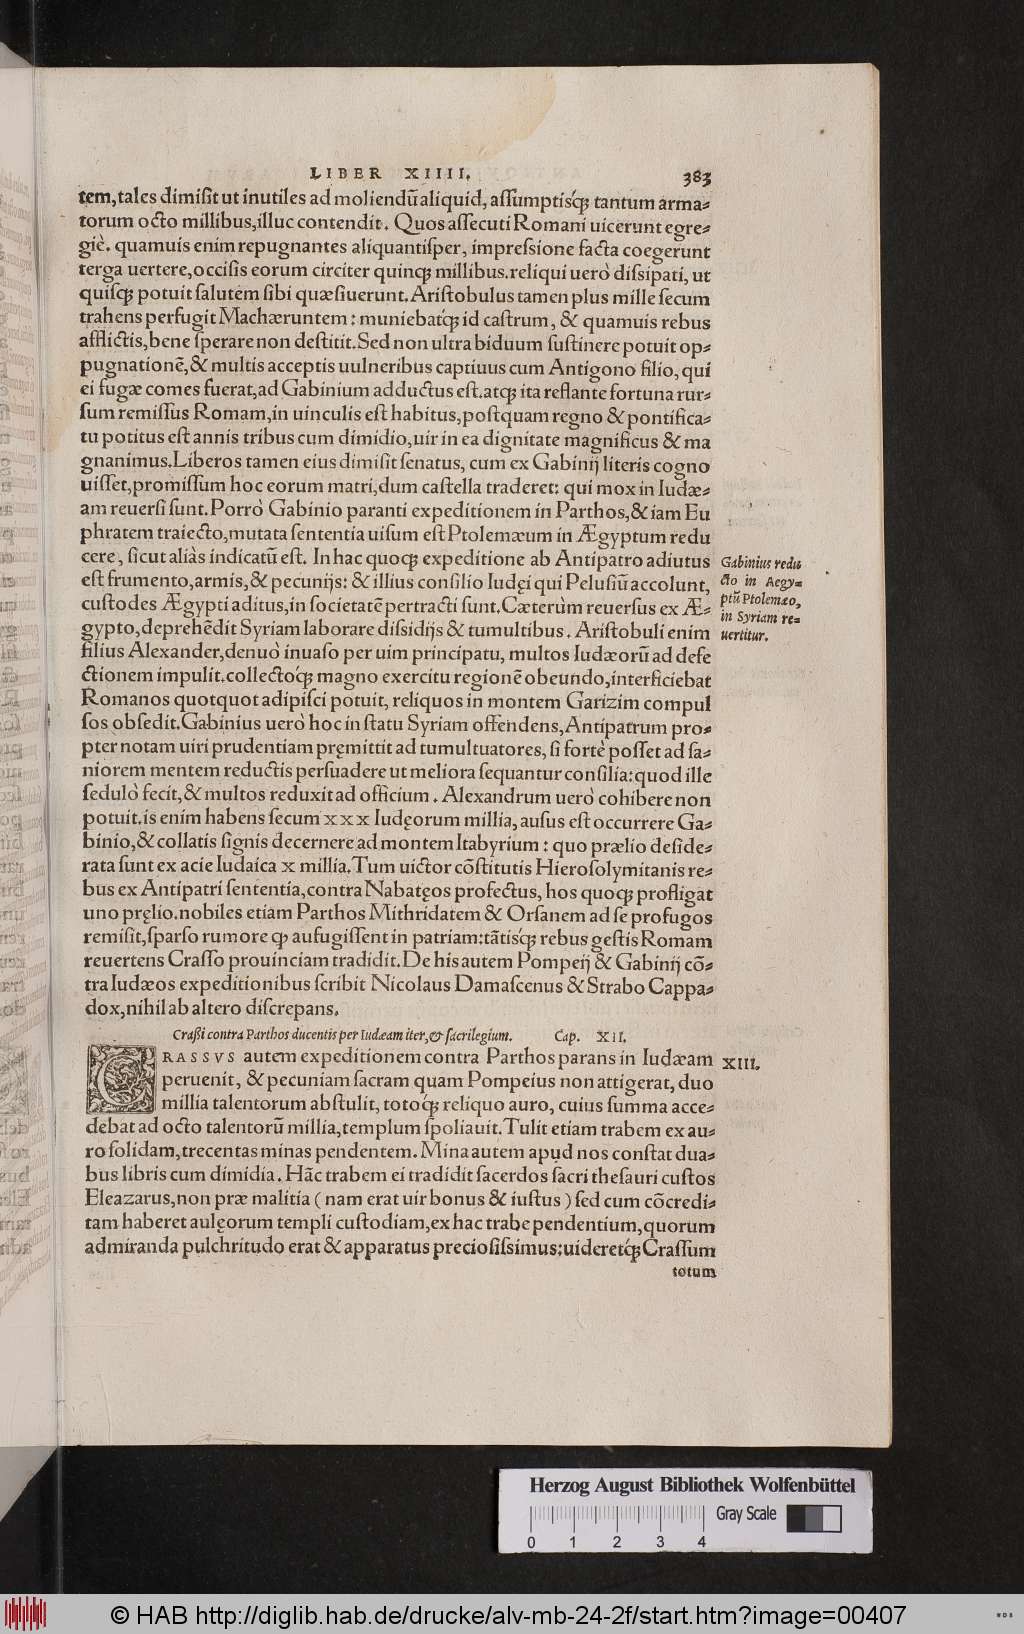 LIBER XIIII. 383
tem, tales dimisit ut inutiles ad moliendũ aliquid, assumptisq́ꝫ tantum arma-
torum octo millibus, illuc contendit. Quos assecuti Romani uicerunt egre-
giè. quamuis enim repugnantes aliquantisper, impressione facta coegerunt
terga uertere, occisis eorum circiter quinqꝫ millibus. reliqui uerò dissipati, ut
quisqꝫ potuit salutem sibi quæsiuerunt. Aristobulus tamen plus mille secum
trahens perfugit Machæruntem: muniebatq́ꝫ id castrum, & quamuis rebus
afflictis, bene sperare non destitit. Sed non ultra biduum sustinere potuit op-
pugnationẽ, & multis acceptis uulneribus captiuus cum Antigono filio, qui
ei fugæ comes fuerat, ad Gabinium adductus est. atqꝫ ita reflante fortuna rur-
sum remissus Romam, in uinculis est habitus, postquam regno & pontifica-
tu potitus est annis tribus cum dimidio, uir in ea dignitate magnificus & ma
gnanimus. Liberos tamen eius dimisit senatus, cum ex Gabinij literis cogno
uisset, promissum hoc eorum matri, dum castella traderet: qui mox in Iudæ-
am reuersi sunt. Porrò Gabinio paranti expeditionem in Parthos, & iam Eu
phratem traiecto, mutata sententia uisum est Ptolemæum in Ægyptum redu
cere, sicut aliàs indicatũ est. In hac quoqꝫ expeditione ab Antipatro adiutus
est frumento, armis, & pecunijs: & illius consilio Iudęi qui Pelusiũ accolunt,
custodes Ægypti aditus, in societatẽ pertracti sunt. Cæterùm reuersus ex Æ-
gypto, deprehẽdit Syriam laborare dissidijs & tumultibus. Aristobuli enim
filius Alexander, denuò inuaso per uim principatu, multos Iudæorũ ad defe
ctionem impulit. collectoq́ꝫ magno exercitu regionẽ obeundo, interficiebat
Romanos quotquot adipisci potuit, reliquos in montem Garizim compul
sos obsedit. Gabinius uerò hoc in statu Syriam offendens, Antipatrum pro-
pter notam uiri prudentiam pręmittit ad tumultuatores, si fortè posset ad sa-
niorem mentem reductis persuadere ut meliora sequantur consilia: quod ille
sedulò fecit, & multos reduxit ad officium. Alexandrum uerò cohibere non
potuit. is enim habens secum xxx Iudęorum millia, ausus est occurrere Ga-
binio, & collatis signis decernere ad montem Itabyrium: quo prælio deside-
rata sunt ex acie Iudaica x millia. Tum uictor cõstitutis Hierosolymitanis re-
bus ex Antipatri sententia, contra Nabatęos profectus, hos quoqꝫ profligat
uno pręlio. nobiles etiam Parthos Mithridatem & Orsanem ad se profugos
remisit, sparso rumore ꝙ aufugissent in patriam: tãtisq́ꝫ rebus gestis Romam
reuertens Crasso prouinciam tradidit. De his autem Pompeij & Gabinij cõ-
tra Iudæos expeditionibus scribit Nicolaus Damascenus & Strabo Cappa-
dox, nihil ab altero discrepans.
Gabinius redu
cto in Aegy-
ptũ Ptolemæo,
in Syriam re-
uertitur.
Crassi contra Parthos ducentis per Iudæam iter, & sacrilegium. Cap. XII.
CRASSVS autem expeditionem contra Parthos parans in Iudæam XIII.
peruenit, & pecuniam sacram quam Pompeius non attigerat, duo
millia talentorum abstulit, totoq́ꝫ reliquo auro, cuius summa acce-
debat ad octo talentorũ millia, templum spoliauit. Tulit etiam trabem ex au-
ro solidam, trecentas minas pendentem. Mina autem apud nos constat dua-
bus libris cum dimidia. Hãc trabem ei tradidit sacerdos sacri thesauri custos
Eleazarus, non præ malitia (nam erat uir bonus & iustus) sed cum cõcredi-
tam haberet aulęorum templi custodiam, ex hac trabe pendentium, quorum
admiranda pulchritudo erat & apparatus preciosissimus: uideretq́ꝫ Crassum
totum
Herzog August Bibliothek Wolfenbüttel
Gray Scale
0 1 2 3 4
© HAB http://diglib.hab.de/drucke/alv-mb-24-2f/start.htm?image=00407